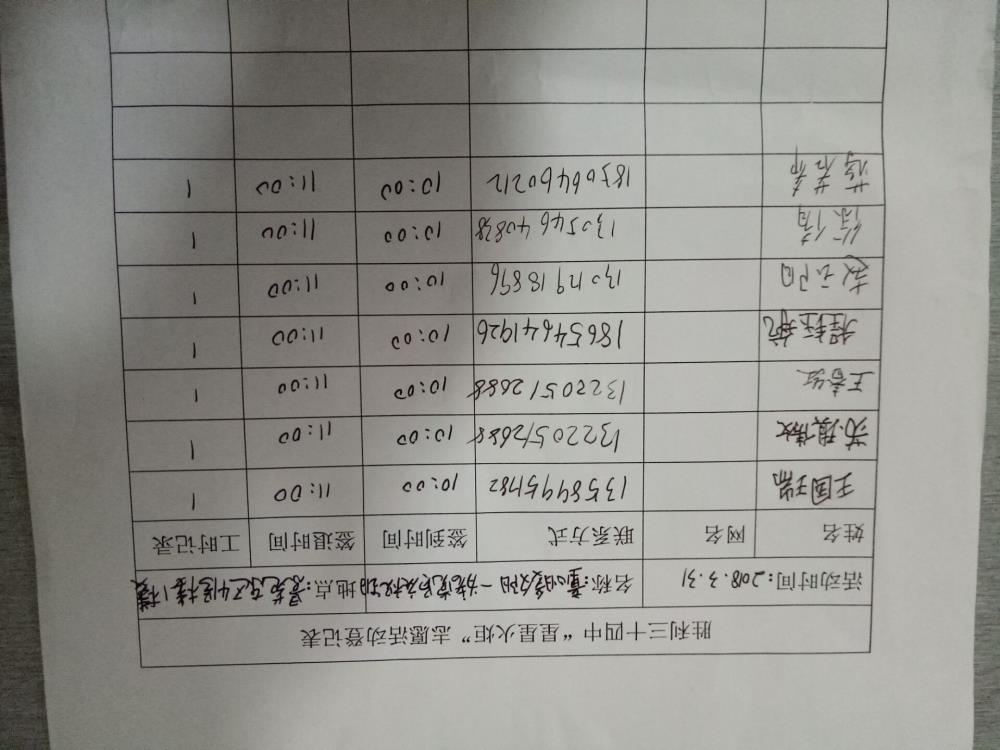 胜利三十四中“星星火炬”志愿活动登记表
活动时间：2018.3.31 名称：童心暖夕阳一 地点：景苑
姓名 网名 联系方式 签到时间 签退时间 工时记录
王国瑞 13589995782 10:00 11:00 1
13220512688 10:00 11:00 1
王春 13220512688 10:00 11:00 1
程钰航 18654641926 10:00 11:00 1
赵云阳 13012918896 10:00 11:00 1
徐倩 13054640838 10:00 11:00 1
18306460212 10:00 11:00 1